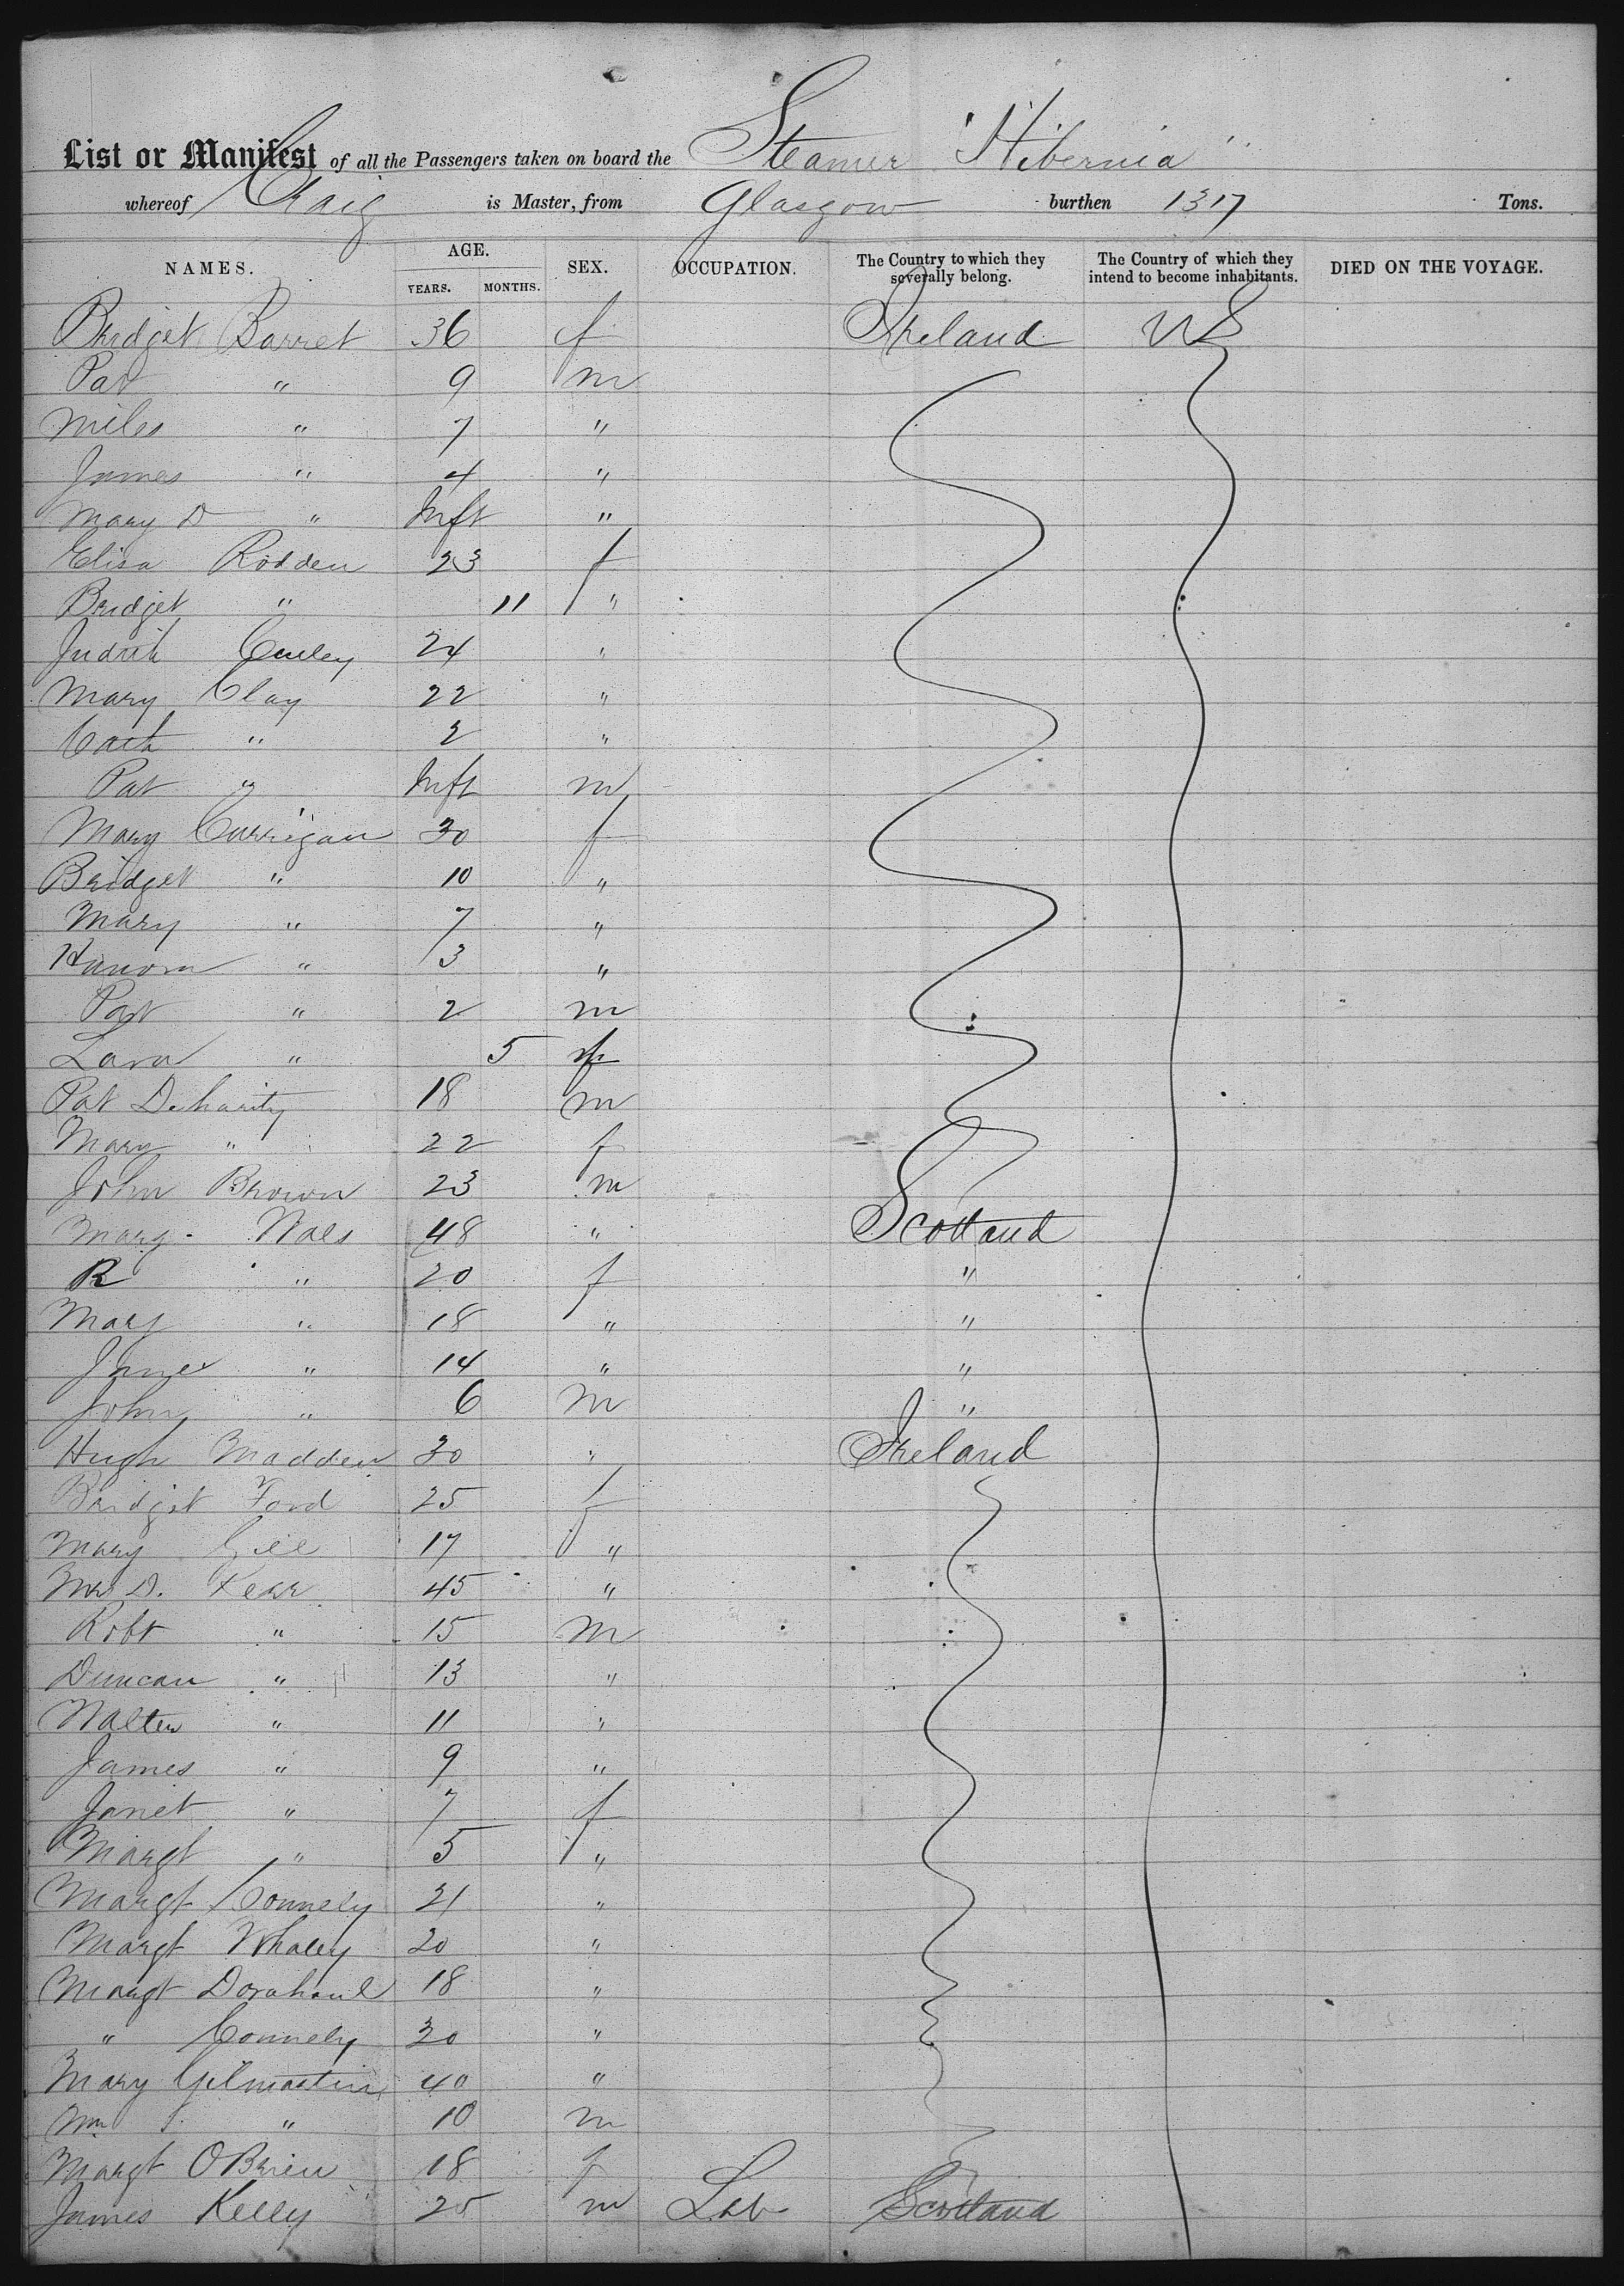 List or Manifest of all the Passengers taken on board the Steamer "Hibernia"
whereof Craig is Master, from Glasgow burthen 1317 Tons.
NAMES. AGE. YEARS. MONTHS. SEX. OCCUPATION. The Country to which they severally belong. The Country of which they intend to become inhabitants. DIED ON THE VOYAGE.
Bridget Barret 36 f Ireland US
Pat " 9 m
Miles " 7 "
James " 4 "
Mary D " Inft "
Elisa Rodden 23 f
Bridget " 11 "
Judith Curley 24 "
Mary Clay 22 "
Cath " 2 "
Pat " Inft m
Mary Carrigan 30 f
Bridget " 10 "
Mary " 7 "
Hanora " 3 "
Pat " 2 m
" 5 f
Pat Deharity 18 m
Mary " 22 f
John Brown 23 m
Mary 48 " Scotland
R " 20 f "
Mary " 18 " "
" 14 " "
John " 6 m "
Hugh Madden 30 " Ireland
Bridget Ford 25 f
Mary Gill 17 "
Mrs D. Kerr 45 "
Robt " 15 m
Duncan " 13 "
Walter " 11 "
James " 9 "
Janet " 7 f
Margt " 5 "
Margt Connely 21 "
Margt Whaley 20 "
Margt 18 "
" Connely 20 "
Mary Gilmartin 40 "
Wm " 10 m
Margt OBrien 18 f
James Kelly 25 m Lab Scotland